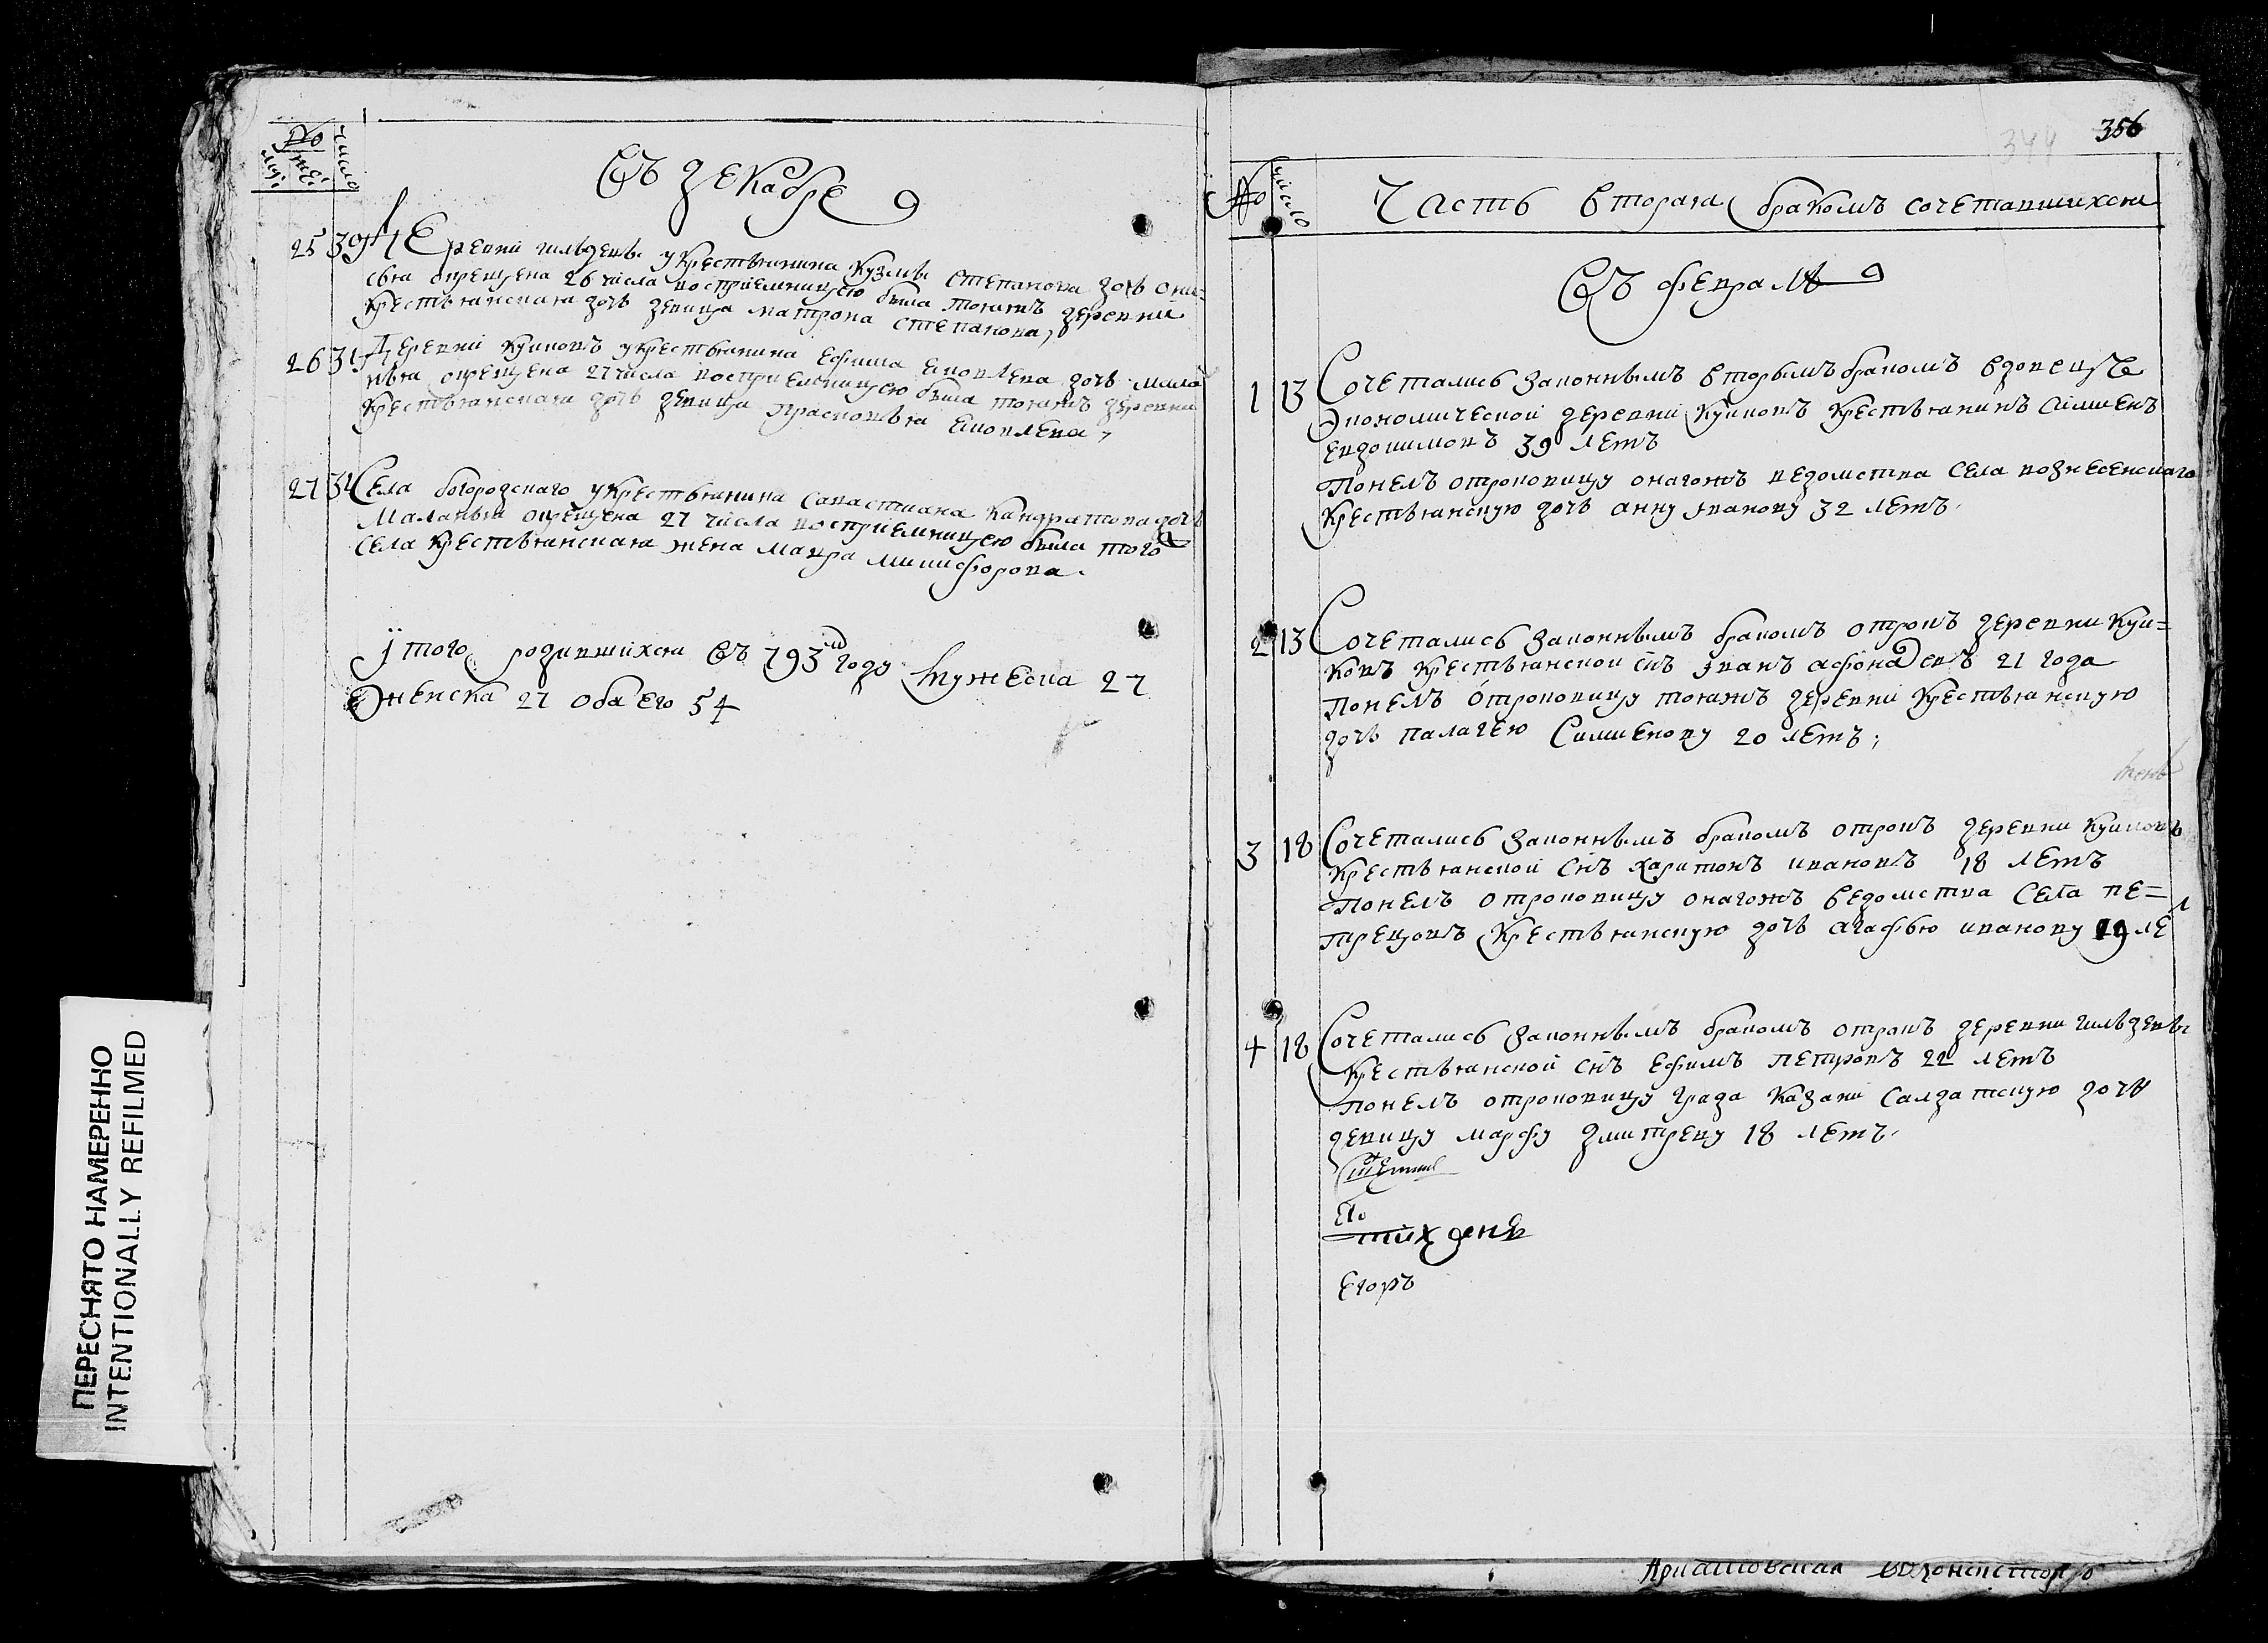 №
число
Въ декабре
25 30 Деревни Гильдевь у крестьянина Кузмы Степанова дочь Они=
сья окрещена 26 числа восприемницею была тояжъ деревни
крестьянская дочь девица Матрона Степанова,
26 31 Деревни Куиковъ у крестьянина Ефима Яковлева дочь Мала
нья окрещена 27 числа восприемницею была тояжъ деревни
крестьянская дочь девица Прасковья Яковлева,
27 31 Села Богородскаго у крестьянина Савастиана Кандратова дочь
Маланья окрещена 27 числа восприемницею была того
села крестьянская жена Мавра Никифорова.
Итого родившихся въ 793м годе мужеска 27
женска 27 обаего 54
ПЕРЕСНЯТО НАМЕРЕННО
INTENTIONALLY REFILMED
344 356
№ число Часть вторая бракомъ сочетавшихся
Въ феврале
1 13 Сочетались законнымъ вторымъ бракомъ вдовецъ
экономической деревни Куиковъ крестьянинъ Симиенъ
Евдокимовъ 39 летъ
Понелъ отроковицу онагожъ ведомства села Вознесенскаго
крестьянскую дочь Анну Иванову 32 летъ.
2 13 Сочетались законнымъ бракомъ отрокъ деревни Куи=
ковъ крестьянской снъ Иванъ Афонасевъ 21 года
Понелъ отроковицу тояжъ деревни крестьянскую
дочь Палагею Симиенову 20 летъ,
3 18 Сочетались законнымъ бракомъ отрокъ деревни Куиковъ
крестьянской снъ Харитонъ Ивановъ 18 летъ
Понелъ отроковицу онагожъ ведомства села Пе=
трецовъ крестьянскую дочь Агафью Иванову 19 ле
4 18 Сочетались законнымъ бракомъ отрокъ деревни Гильдевь
крестьянской снъ Ефимъ Петровъ 22 летъ
Понелъ отроковицу града Казани салдатскую дочь
девицу Марфу Дмитреву 18 летъ.
Его
Егоръ